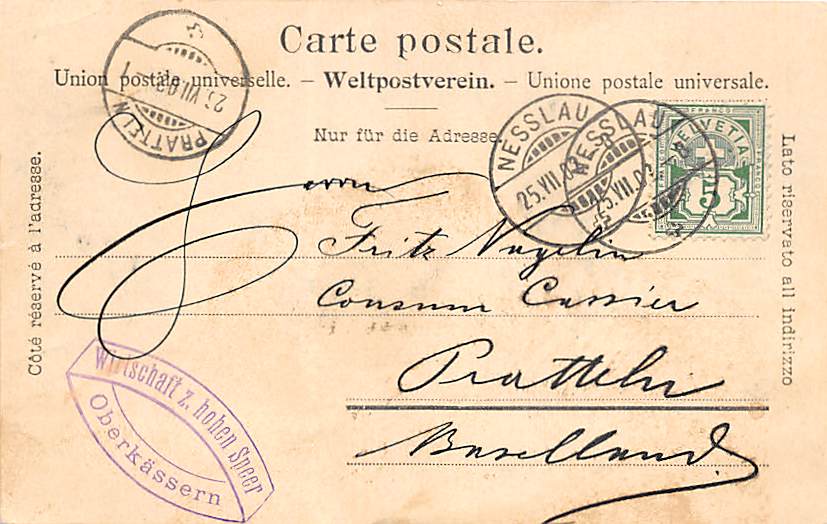 Carte postale.
Union postale universelle. – Weltpostverein. – Unione postale universale.
Nur für die Adresse.
Côté réservé à l'adresse.
Lato riservato all indirizzo
PRATTELN
25.VII.03
NESSLAU
25.VII.03
NESSLAU
25.VII.03
HELVETIA
FRANCO
5
Herrn
Fritz Nägelin
Consum Cassier
Pratteln
Baselland
Wirtschaft z. hohen Speer
Oberkässern